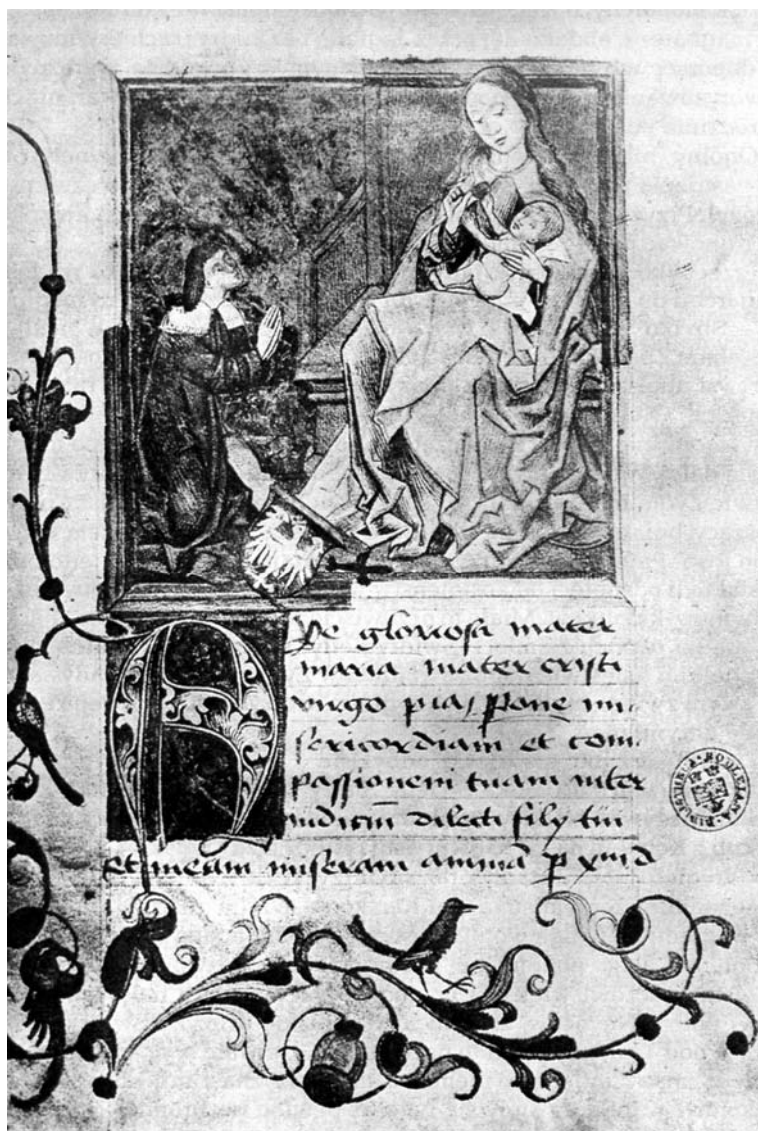 Ave gloriosa mater
maria mater cristi
virgo pia pone mi-
sericordiam et com
passionem tuam inter
iudiciū dilecti filij tui
et meam miseram animā
BIBLIOTHECA BODLEIANA